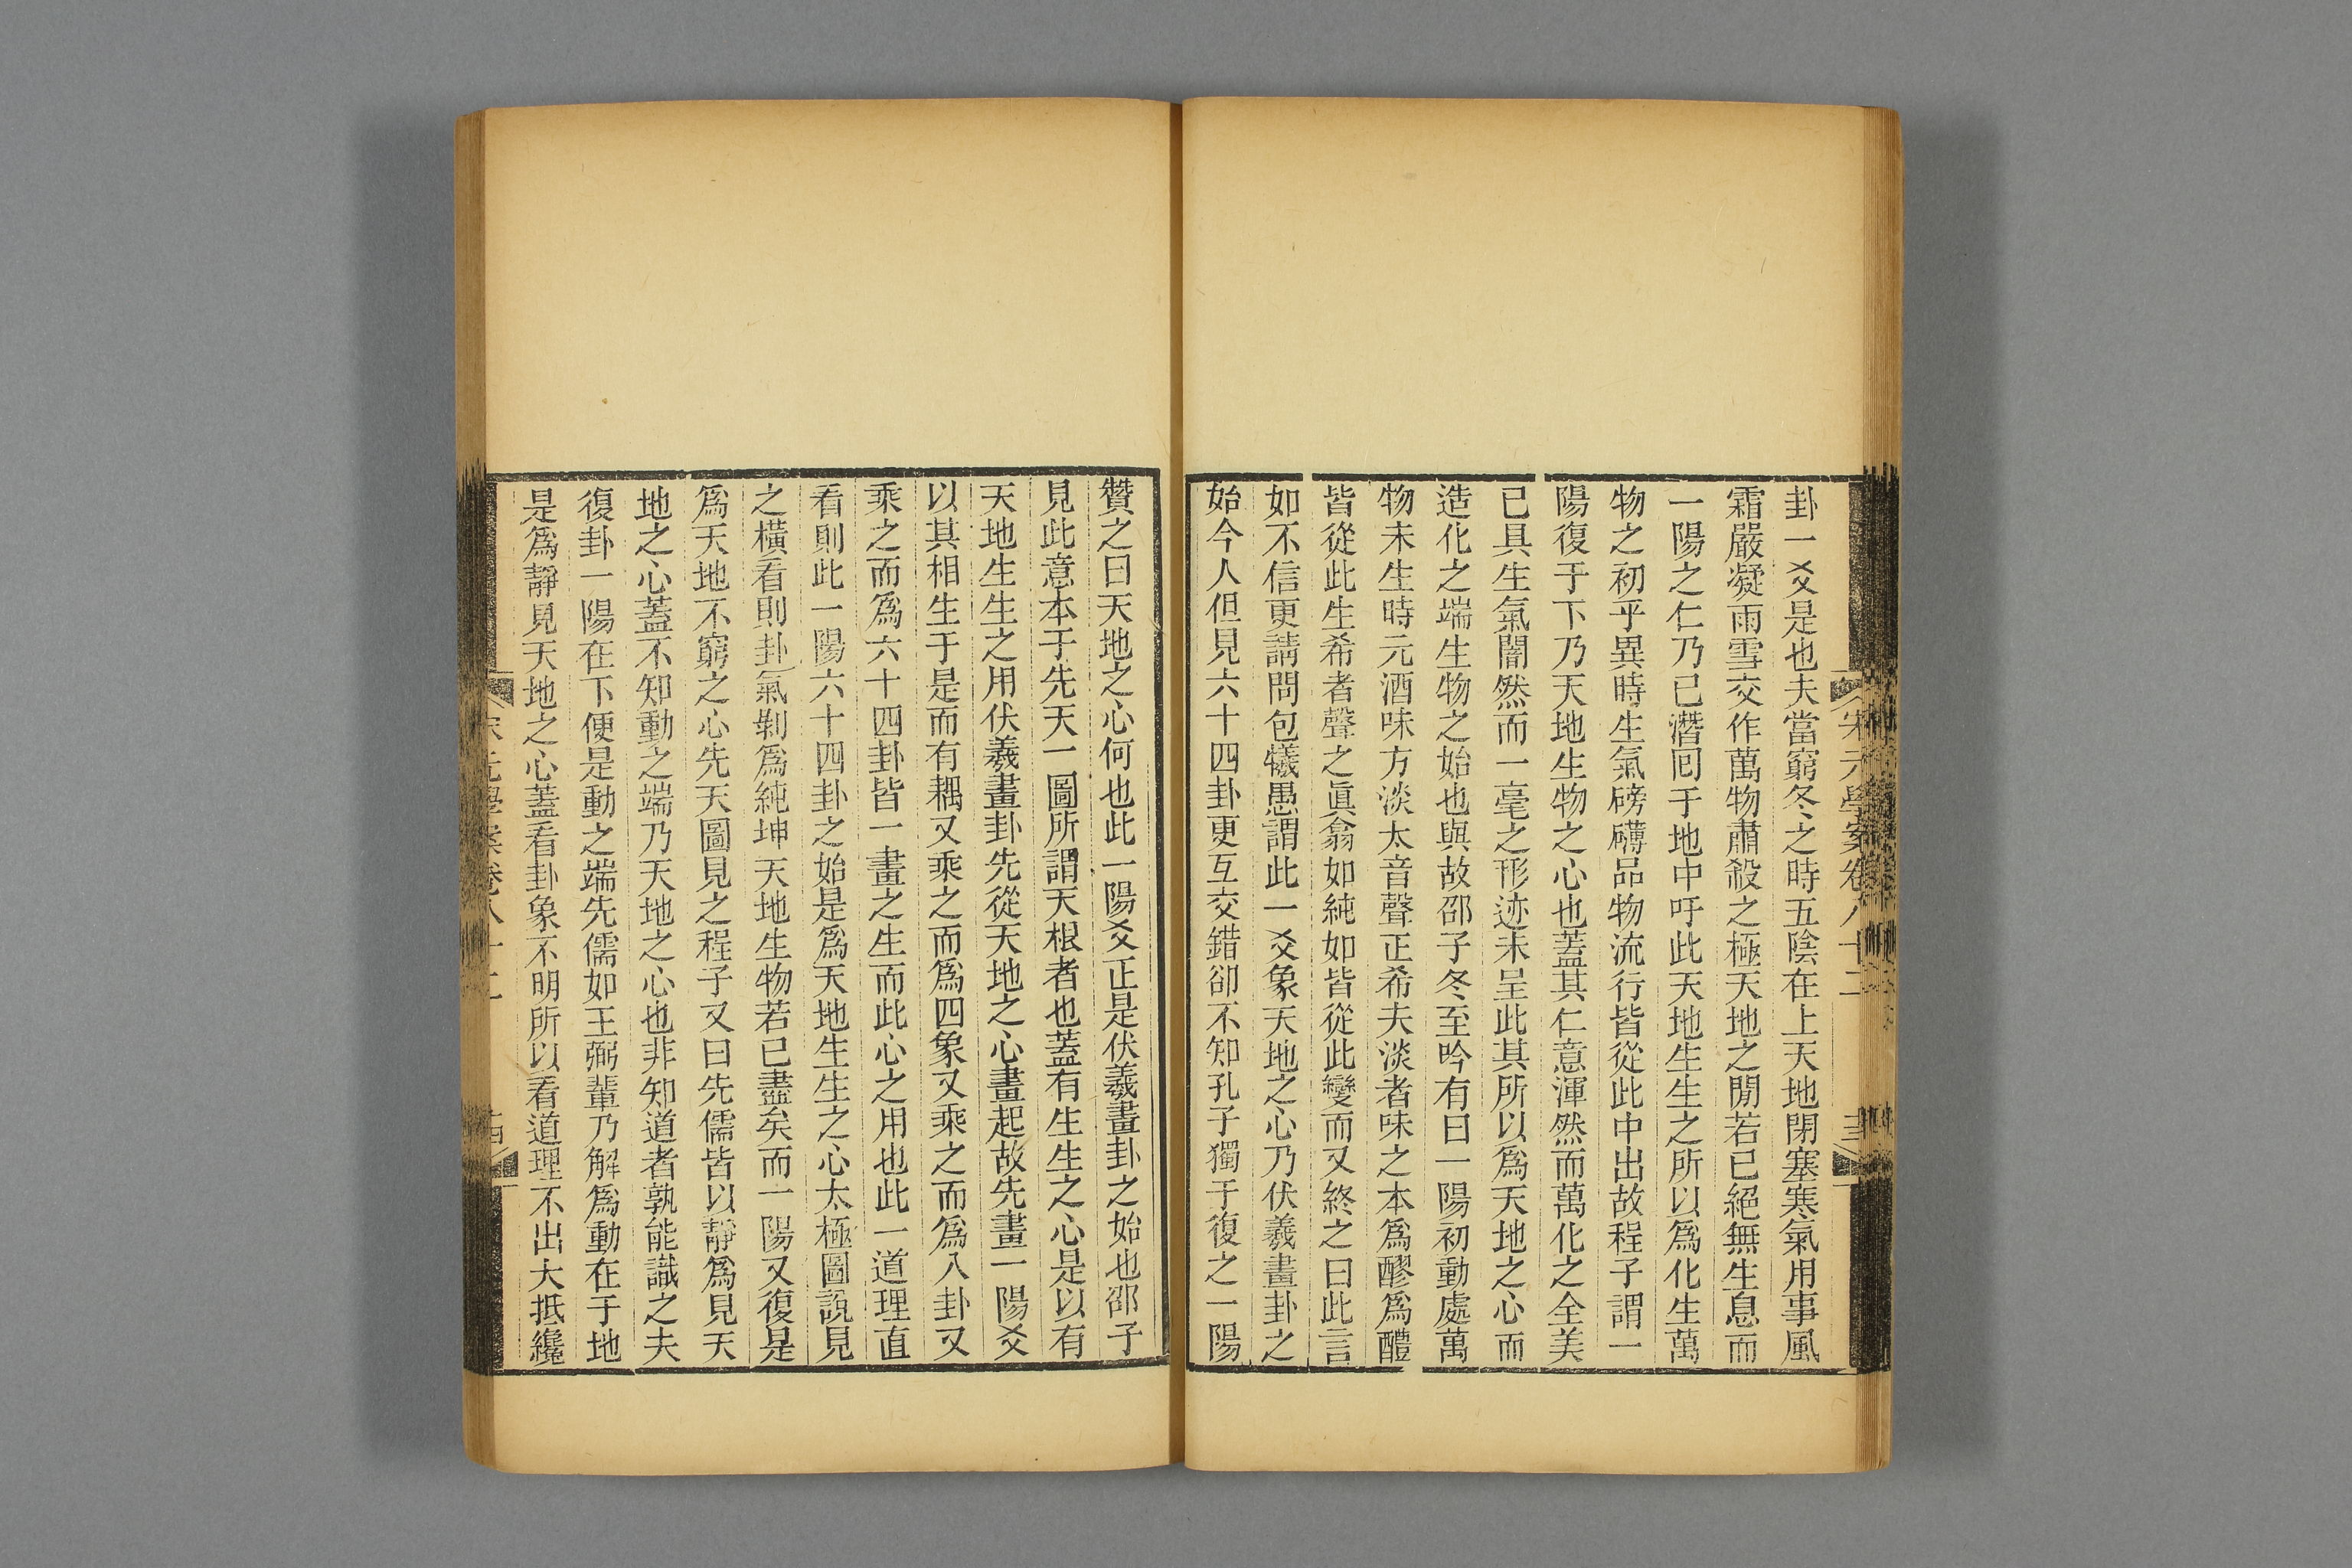 卦一爻是也夫當窮冬之時五陰在上天地閉塞寒氣用事風
霜嚴凝雨雪交作萬物肅殺之極天地之閒若已絕無生息而
一陽之仁乃已潛囘于地中吁此天地生生之所以爲化生萬
物之初乎異時生氣磅礴品物流行皆從此中出故程子謂一
陽復于下乃天地生物之心也蓋其仁意渾然而萬化之全美
已具生氣闇然而一毫之形迹未呈此其所以爲天地之心而
造化之端生物之始也與故邵子冬至吟有曰一陽初動處萬
物未生時元酒味方淡太音聲正希夫淡者味之本爲醪爲醴
皆從此生希者聲之眞翕如純如皆從此變而又終之曰此言
如不信更請問包犧愚謂此一爻象天地之心乃伏羲畫卦之
始今人但見六十四卦更互交錯卻不知孔子獨于復之一陽
贊之曰天地之心何也此一陽爻正是伏羲畫卦之始也邵子
見此意本于先天一圖所謂天根者也蓋有生生之心是以有
天地生生之用伏羲畫卦先從天地之心畫起故先畫一陽爻
以其相生于是而有耦又乘之而爲四象又乘之而爲八卦又
乘之而爲六十四卦皆一畫之生而此心之用也此一道理直
看則此一陽六十四卦之始是爲天地生生之心太極圖說見
之橫看則卦氣剝爲純坤天地生物若已盡矣而一陽又復是
爲天地不窮之心先天圖見之程子又曰先儒皆以靜爲見天
地之心蓋不知動之端乃天地之心也非知道者孰能識之夫
復卦一陽在下便是動之端先儒如王弼輩乃解爲動在于地
是爲靜見天地之心蓋看卦象不明所以看道理不出大抵纔
宋元學案卷八十二